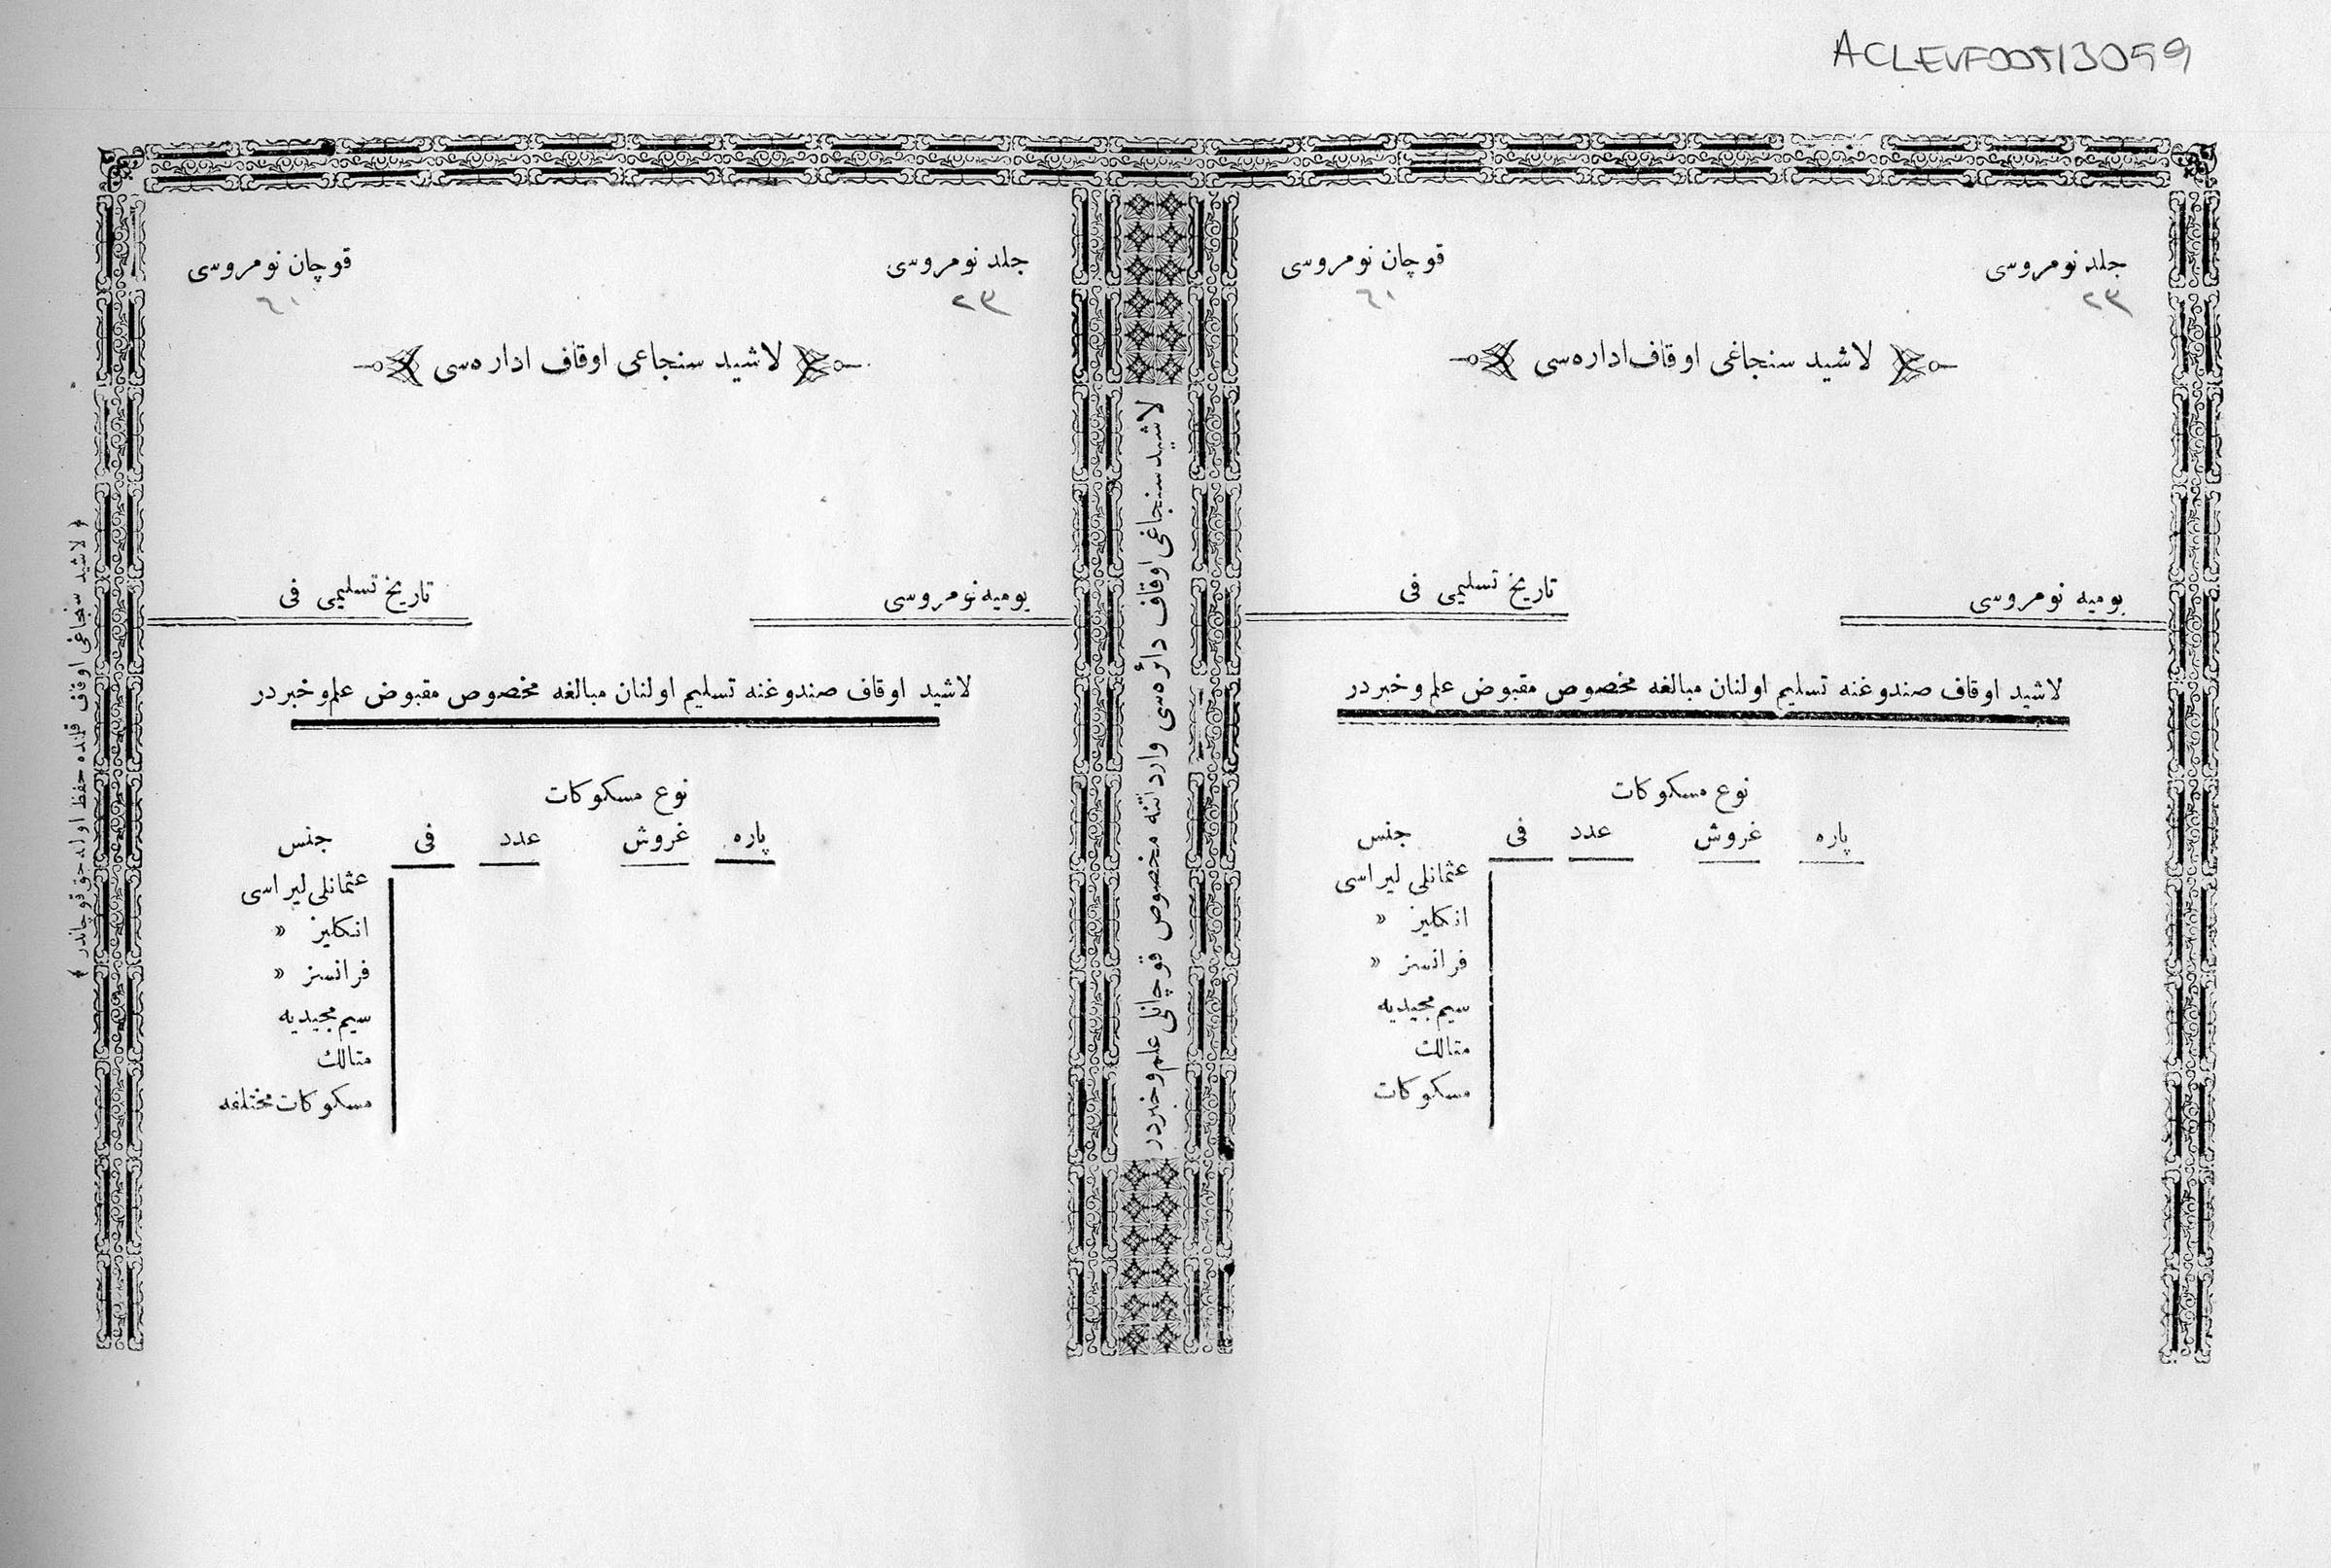 ACLEVF00513059
جلد نومروسی
٢٣
قوچان نومروسی
٦١
لاشید سنجاغی اوقاف اداره‌سی
یومیه نومروسی
تاریخ تسلیمی فی
لاشید اوقاف صندوغنه تسلیم اولنان مبالغه مخصوص مقبوض علم و خبردر
نوع مسكوكات
پاره غروش عدد فی جنس
عثمانلی لیراسی
انكلیز »
فرانسز »
سیم مجیدیه
متالك
مسكوكات
لاشید سنجاغی اوقاف دائره‌سی وارداتنه مخصوص قوچانلی علم و خبردر
جلد نومروسی
٢٣
قوچان نومروسی
٦١
لاشید سنجاعی اوقاف اداره‌سی
یومیه نومروسی
تاریخ تسلیمی فی
لاشید اوقاف صندوغنه تسلیم اولنان مبالغه مخصوص مقبوض علم و خبردر
نوع مسكوكات
پاره غروش عدد فی جنس
عثمانلی لیراسی
انكلیز »
فرانسز »
سیم مجیدیه
متالك
مسكوكات مختلفه
﴿ لاشید سنجاغی اوقاف قلمنده حفظ اوله‌جق قوچاندر ﴾